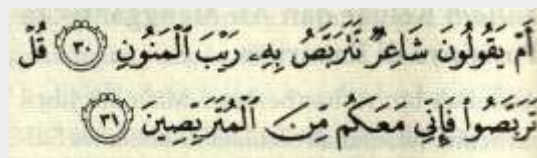 أَمْ يَقُولُونَ شَاعِرٌ نَّتَرَبَّصُ بِهِۦ رَيْبَ ٱلْمَنُونِ ٣٠ قُلْ
تَرَبَّصُوا۟ فَإِنِّى مَعَكُم مِّنَ ٱلْمُتَرَبِّصِينَ ٣١